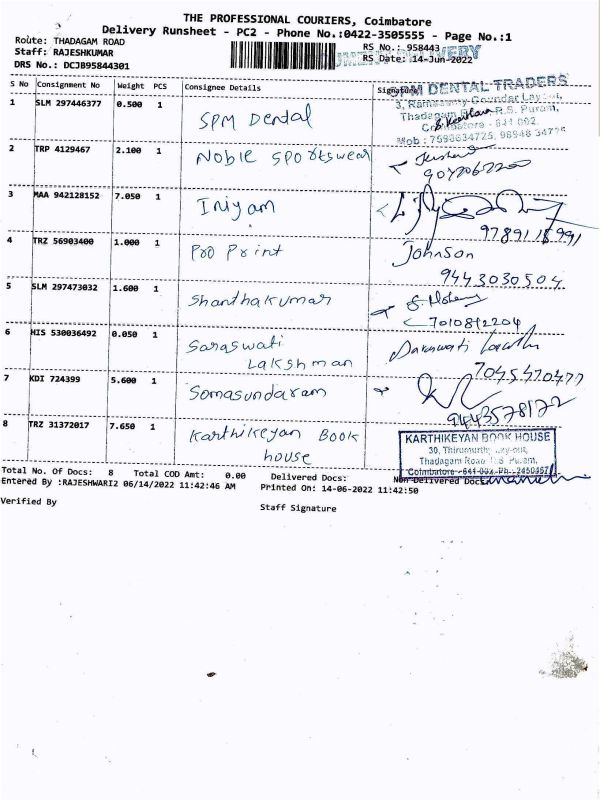 THE PROFESSIONAL COURIERS, Coimbatore
Delivery Runsheet - PC2 - Phone No.:0422-3505555 - Page No.:1
Route: THADAGAM ROAD
Staff: RAJESHKUMAR
DRS No.: DCJB95844301
RS No.: 958443
RS Date: 14-Jun-2022
S No Consignment No Weight PCS Consignee Details Signature
1 SLM 297446377 0.500 1 SPM Dental
SPM DENTAL TRADERS
3, Ramaswamy Gounder Layout,
Thadagam Road, R.S. Puram,
Coimbatore - 641 002.
Mob : 7598634725, 98948 34725
2 TRP 4129467 2.100 1 Noble Sportswear
3 MAA 942128152 7.050 1 Iniyam
4 TRZ 56903400 1.000 1 Pro Print Johnson
9443030504
5 SLM 297473032 1.600 1 Shanthakumar
7010812204
6 HIS 530036492 0.050 1 Saraswati
Lakshman
7045470477
7 KDI 724399 5.600 1 Somasundaram
9443578172
8 TRZ 31372017 7.650 1 Karthikeyan Book
house
KARTHIKEYAN BOOK HOUSE
30, Thirumurthy Lay-out,
Thadagam Road R.S. Puram,
Coimbatore - 641 002 Ph : 2450457
Total No. Of Docs: 8 Total COD Amt: 0.00 Delivered Docs: Non Delivered Docs:
Entered By :RAJESHWARI2 06/14/2022 11:42:46 AM Printed On: 14-06-2022 11:42:50
Verified By Staff Signature